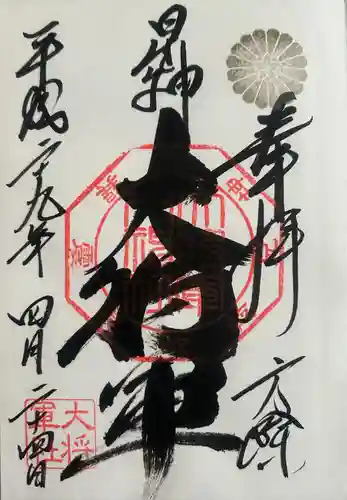 奉拝
方除
星神
大将軍
平成二十九年四月二十四日
大将
軍社